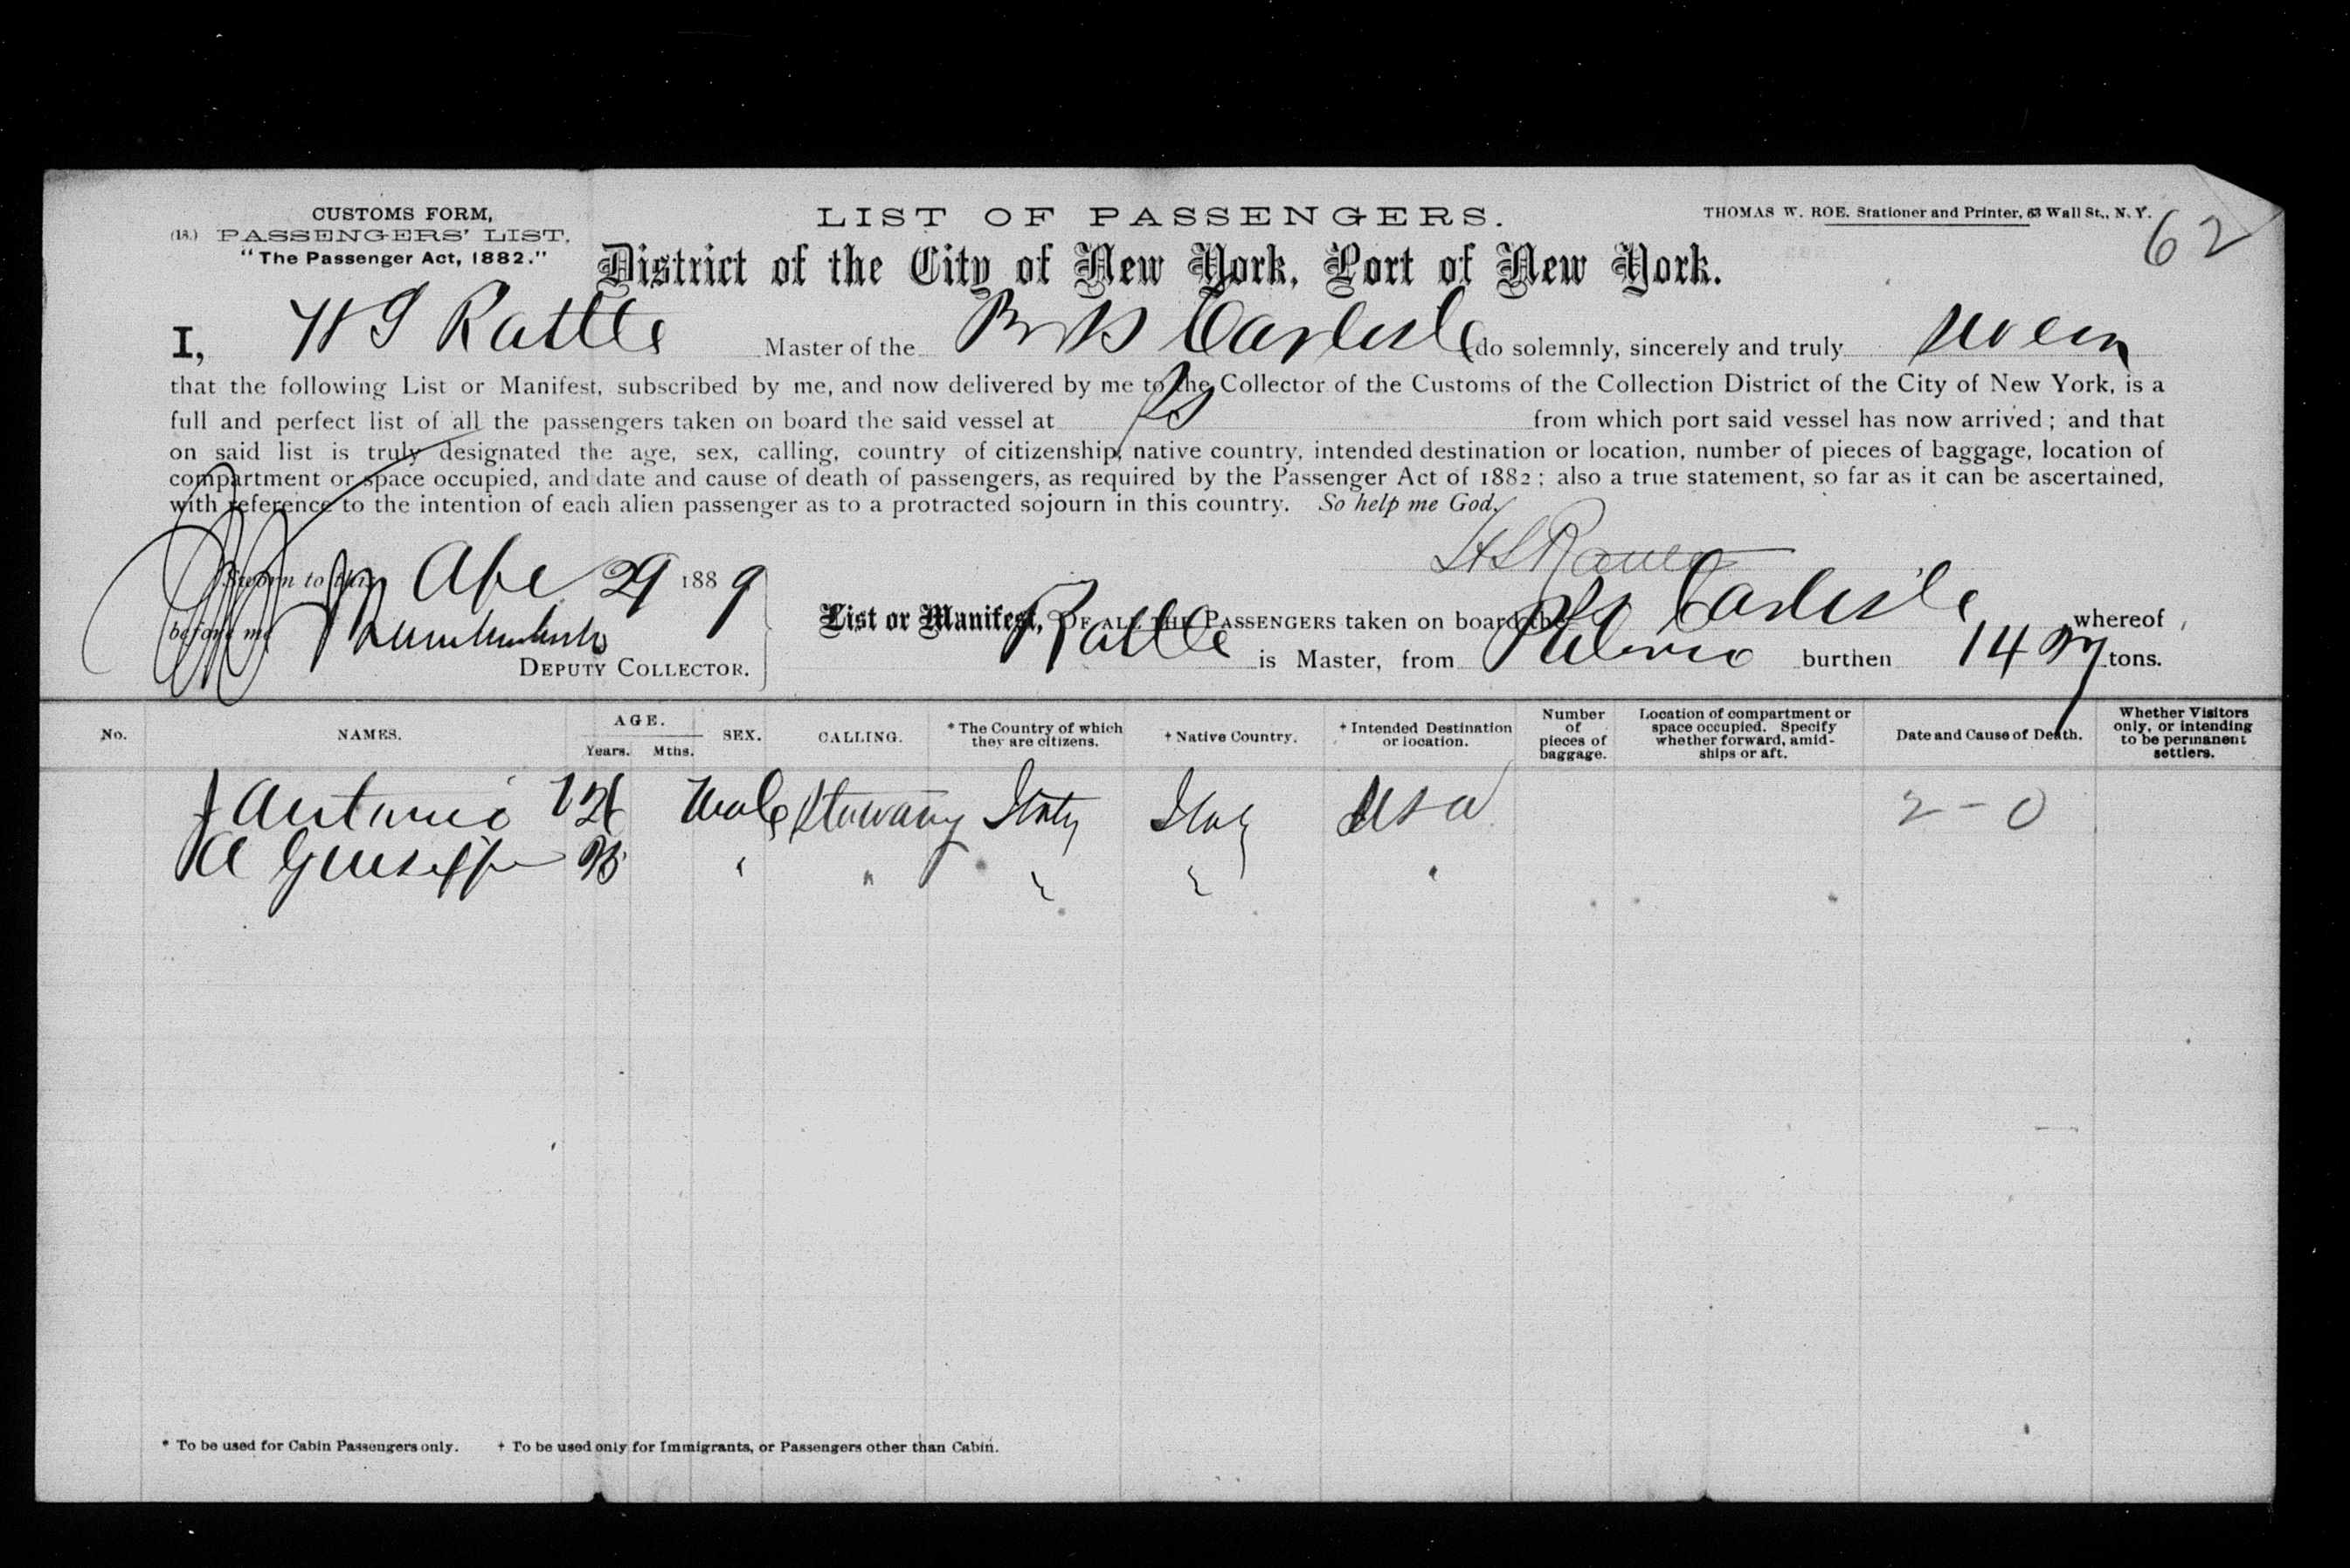 CUSTOMS FORM,
(18.) PASSENGERS' LIST.
"The Passenger Act, 1882."
LIST OF PASSENGERS.
THOMAS W. ROE. Stationer and Printer, 63 Wall St., N. Y.
62
District of the City of New York, Port of New York.
I, Rattle Master of the Carlisle do solemnly, sincerely and truly swear
that the following List or Manifest, subscribed by me, and now delivered by me to the Collector of the Customs of the Collection District of the City of New York, is a
full and perfect list of all the passengers taken on board the said vessel at from which port said vessel has now arrived; and that
on said list is truly designated the age, sex, calling, country of citizenship, native country, intended destination or location, number of pieces of baggage, location of
compartment or space occupied, and date and cause of death of passengers, as required by the Passenger Act of 1882; also a true statement, so far as it can be ascertained,
with reference to the intention of each alien passenger as to a protracted sojourn in this country. So help me God.
Sworn to this 29 1889
before me
DEPUTY COLLECTOR.
List or Manifest, OF ALL THE PASSENGERS taken on board the Carlisle whereof
Rattle is Master, from burthen tons.
No.
NAMES.
AGE.
Years. Mths.
SEX.
CALLING.
* The Country of which
they are citizens.
+ Native Country.
+ Intended Destination
or location.
Number
of
pieces of
baggage.
Location of compartment or
space occupied. Specify
whether forward, amid-
ships or aft.
Date and Cause of Death.
Whether Visitors
only, or intending
to be permanent
settlers.
Antonio Male Italy Italy USA 2-0
A Giuseppe " " " " "
* To be used for Cabin Passengers only. + To be used only for Immigrants, or Passengers other than Cabin.